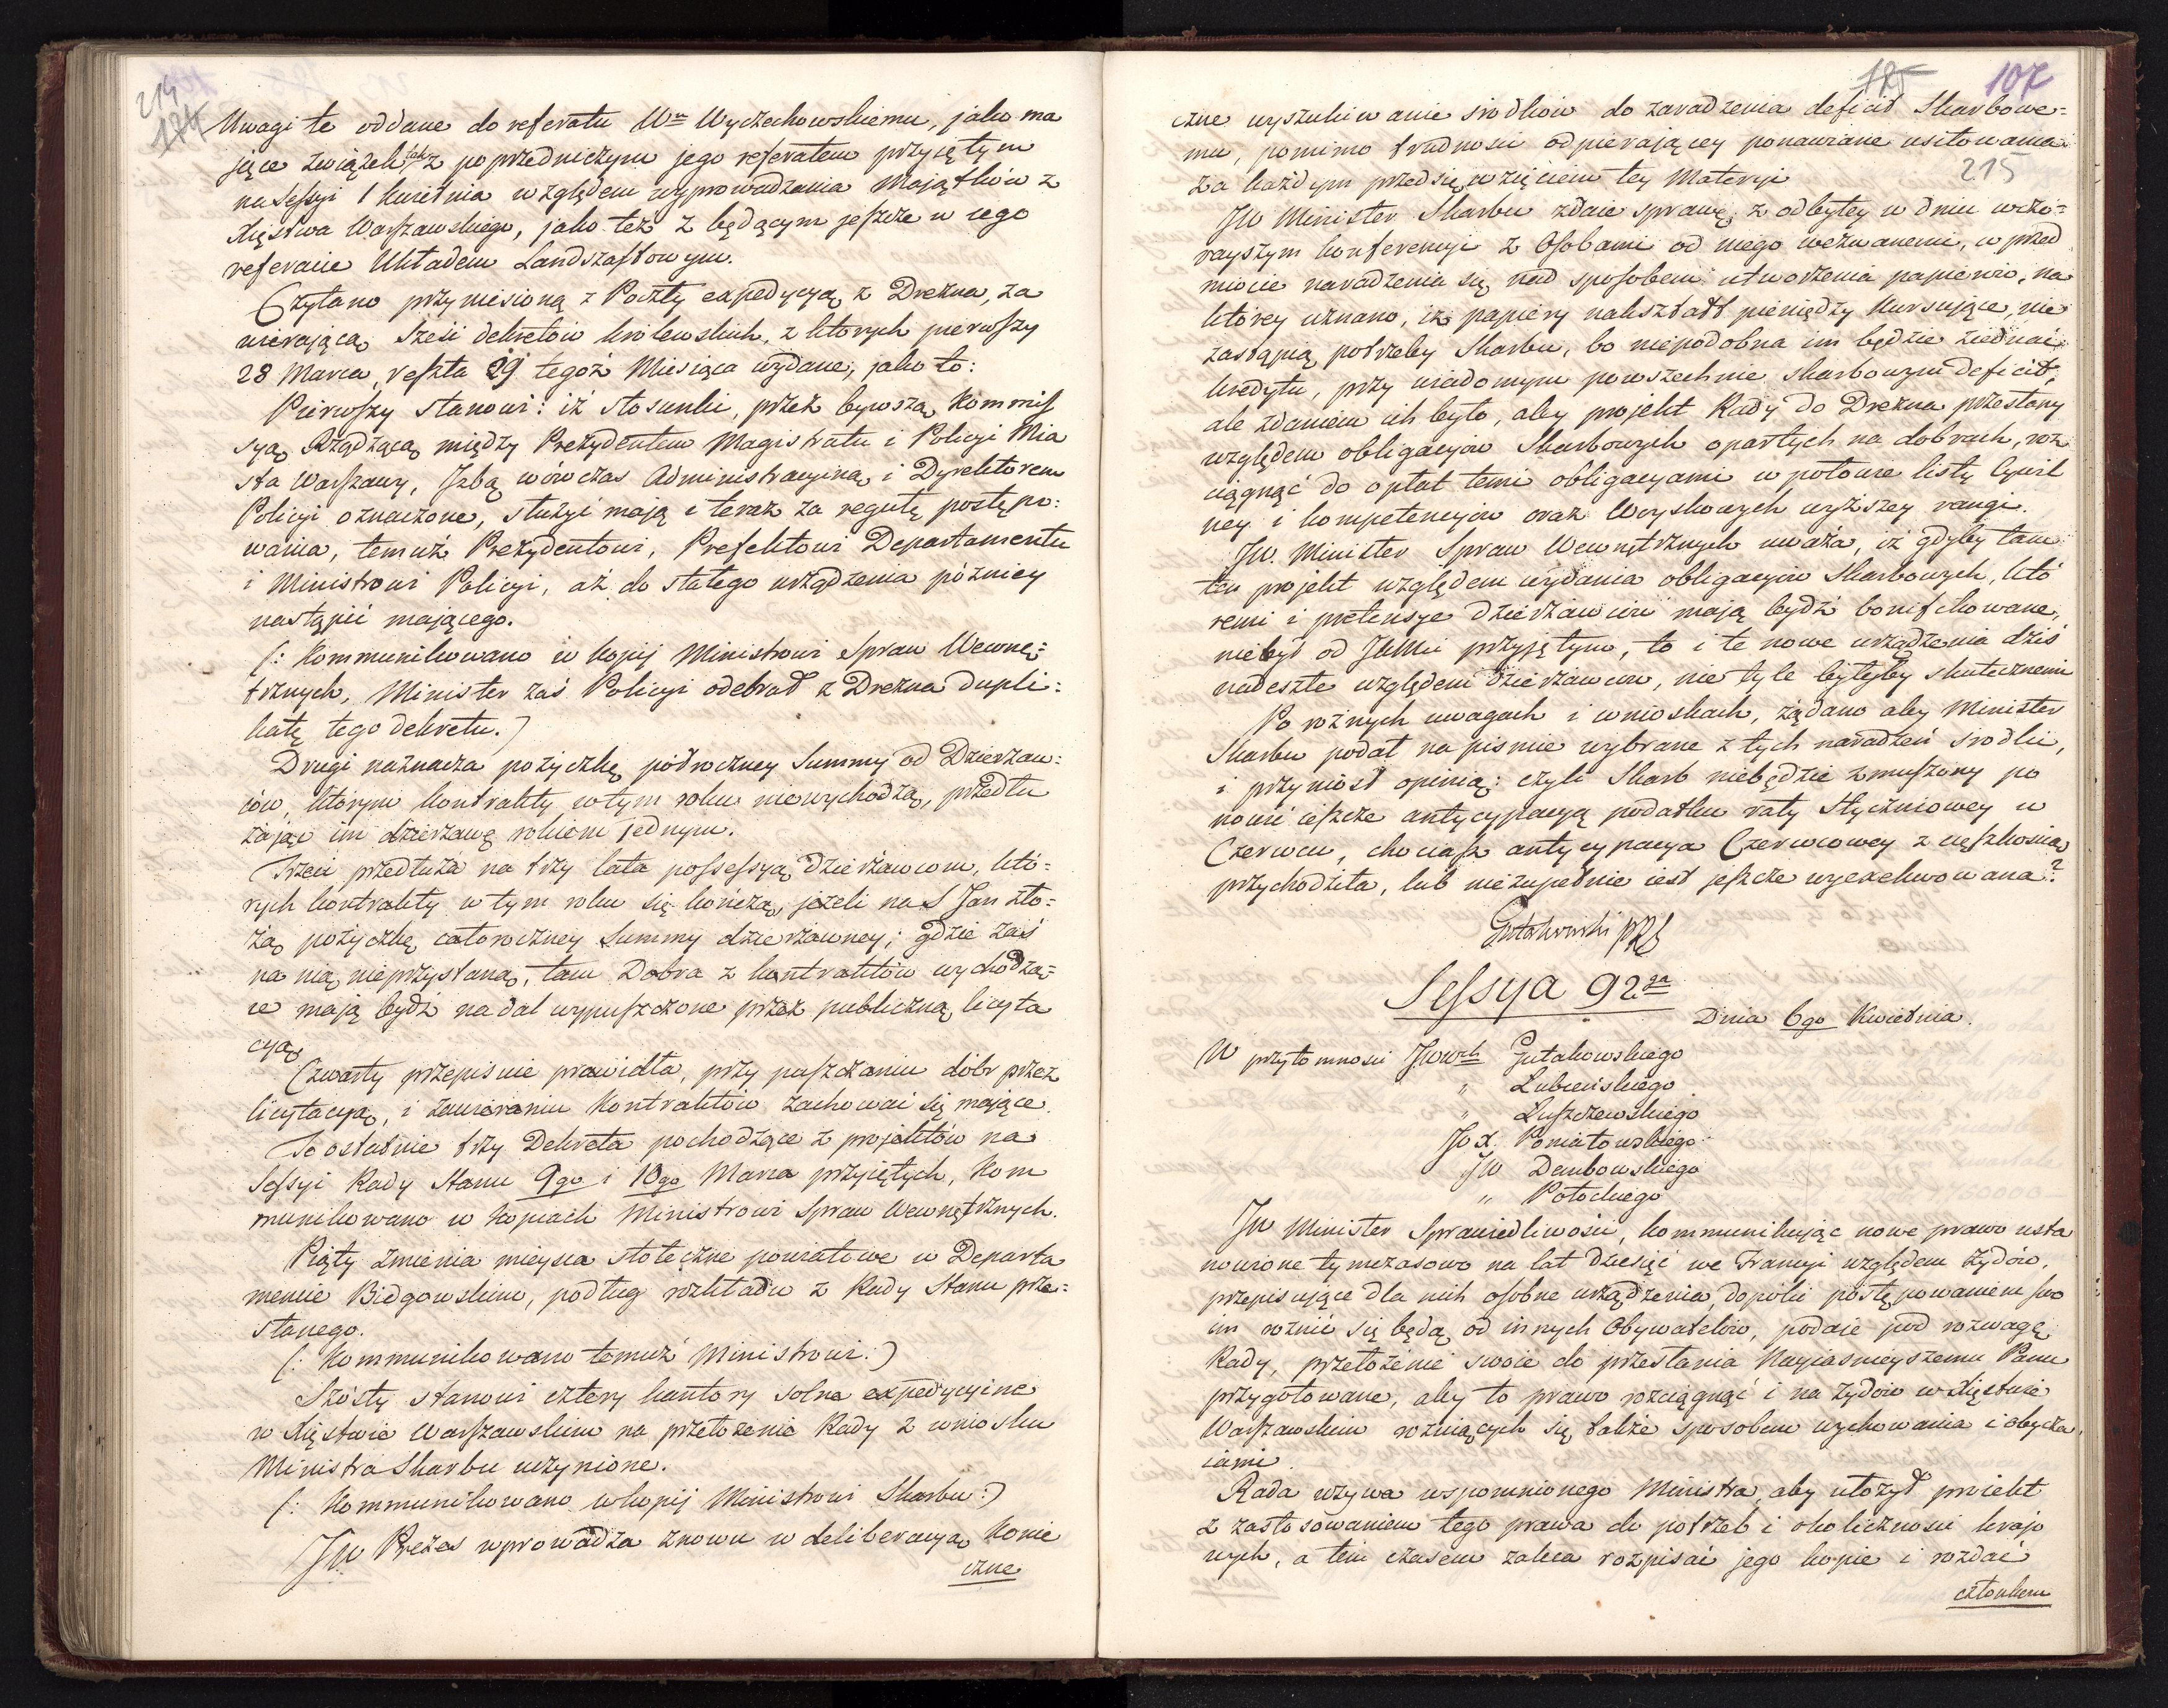 214
184
Uwagi te oddane do referatu Wu Wyczechowskiemu, jako ma
jące związek tak z poprzedniczym jego referatem przyjętym
na Sessyi 1 Kwietnia względem wyprowadzania Majątków z
Xięstwa Warszawskiego, jako też z będącym jeszcze w iego
referacie Układem Landszaftowym.
Czytano przyniesioną z Poczty expedycyą z Drezna, za
wierającą sześć dekretów królewskich, z których pierwszy
28 Marca, reszta 29 tegoż Miesiąca wydane, jako to:
Pierwszy stanowi: iż stosunki, przez bywszą Kommis
syą Rządzącą między Prezydentem Magistratu i Policyi Mia
sta Warszawy, Izbą wówczas Administracyiną i Dyrektorem
Policyi oznaczone, służyć mają i teraz za regułę postępo=
wania, temuż Prezydentowi, Prefektowi Departamentu
i Ministrowi Policyi, aż do stałego urządzenia późniey
nastąpić mającego.
(: Kommunikowano w kopij Ministrowi Spraw Wewnę=
trznych, Minister zaś Policyi odebrał z Drezna dupli=
katę tego dekretu.)
Drugi naznacza pożyczkę półroczney Summy od Dzierżaw=
ców, którym kontrakty w tym roku niewychodzą, przedłu
żając im dzierżawę rokiem jednym.
Trzeci przedłuża na trzy lata possessyą dzierżawcom, któ=
rych kontrakty w tym roku się kończą, jeżeli na S Jan zło=
żą pożyczkę całoroczney Summy dzierżawney; gdzie zaś
na nią nieprzystaną, tam Dobra z kontraktów wychodzą=
ce mają bydź nadal wypuszczone przez publiczną licyta
cyą.
Czwarty przepisuie prawidła, przy puszczaniu dóbr przez
licytacyą, i zawieraniu Kontraktów zachować się mające.
Te ostatnie trzy Dekreta pochodzące z projektów na
Sessyi Rady Stanu 9go i 10go Marca przyiętych, Kom
munikowano w kopiach Ministrowi Spraw Wewnętrznych.
Piąty zmienia mieysca stołeczne powiatowe w Departa
mencie Bidgowskim, podług rozkładu z Rady Stanu prze=
słanego.
(: Kommunikowano temuż Ministrowi:)
Szósty stanowi cztery kantory solne expedycyine
w Xięstwie Warszawskim na przełożenie Rady z wniosku
Ministra Skarbu uczynione.
(: Kommunikowano w kopij Ministrowi Skarbu:)
JW Prezes wprowadza znowu w deliberacyą konie
czne
185
107
czne wyszukiwanie środków do zaradzenia deficit Skarbowe=
mu, pomimo trudności odpierającey ponawiane usiłowania
za każdym przedsięwzięciem tey Materyi
215
JW Minister Skarbu zdaie sprawę, z odbytey w dniu wczo=
rayszym konferencyi z Osobami od niego wezwanemi, w przed
miocie naradzenia się nad sposobem utworzenia papierów, na
którey uznano, iż papiery nakształt pieniędzy kursujące, nie
zastąpią potrzeby Skarbu, bo niepodobna im będzie ziednać
kredytu, przy wiadomym powszechnie skarbowym deficit,
ale zdaniem ich było, aby projekt Rady do Drezna przesłany
względem obligacyów Skarbowych opartych na dobrach, roz
ciągnąć do opłat temi obligacyami w połowie listy Cywil
ney i kompetencyów oraz Woyskowych wyższey rangi.
JW. Minister Spraw Wewnętrznych uważa, iż gdyby tam
ten projekt względem wydania obligacyów Skarbowych, któ
remi i pretensye dzierżawców mają bydź bonifikowane,
niebył od JKMci przyjętym, to i te nowe urządzenia dziś
nadeszłe względem dzierżawców, nie tyle byłyby skutecznemi
Po rożnych uwagach i wnioskach, żądano aby Minister
Skarbu podał na piśmie wybrane z tych naradzeń srodki,
i przyniósł opinią: czyli Skarb niebędzie zmuszony po
nowić ieszcze antycypacyą podatku raty Styczniowey w
Czerwcu, chociasz antycypacya Czerwcowey z cięszkością
przychodziła, lub niezupełnie iest jeszcze wyexekwowana?
Gutakowski PRS
Sessya 92ga
Dnia 6go Kwietnia.
W przytomności JWwch Gutakowskiego
" Łubieńskiego
" Łuszczewskiego
JO X. Poniatowskiego
JW Dembowskiego
" Potockiego
JW Minister Sprawiedliwości, kommunikując nowe prawo usta
nowione tymczasowo na lat dziesięć we Francyi względem żydów,
przepisujące dla nich osobne urządzenia, dopóki postępowaniem swo
im roznić się będą od innych Obywatelów, podaie pod rozwagę
Rady, przełożenie swoie do przesłania Nayiasnieyszemu Panu
przygotowane, aby to prawo rozciągnąć i na żydów w Xięstwie
Warszawskim rożniących się także sposobem wychowania i obycza
iami.
Rada wzywa wspomnionego Ministra, aby ułożył projekt
z zastosowaniem tego prawa do potrzeb i okoliczności krajo
wych, a tem czasem zaleca rozpisać jego kopie i rozdać
członkom